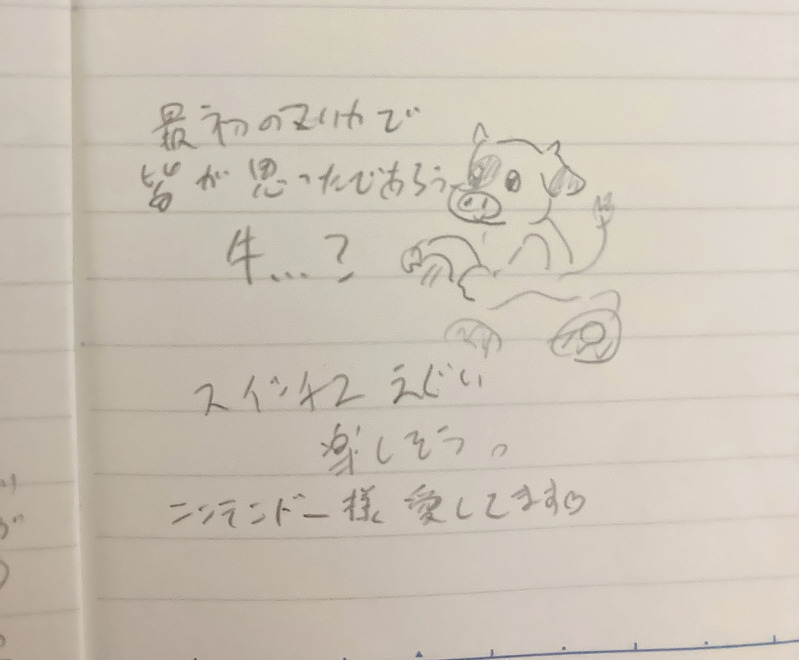 最初のマリカで
皆が思ったであろう
牛…?
スイッチ2 えぐい
楽しそう。
ニンテンドー様 愛してます♡